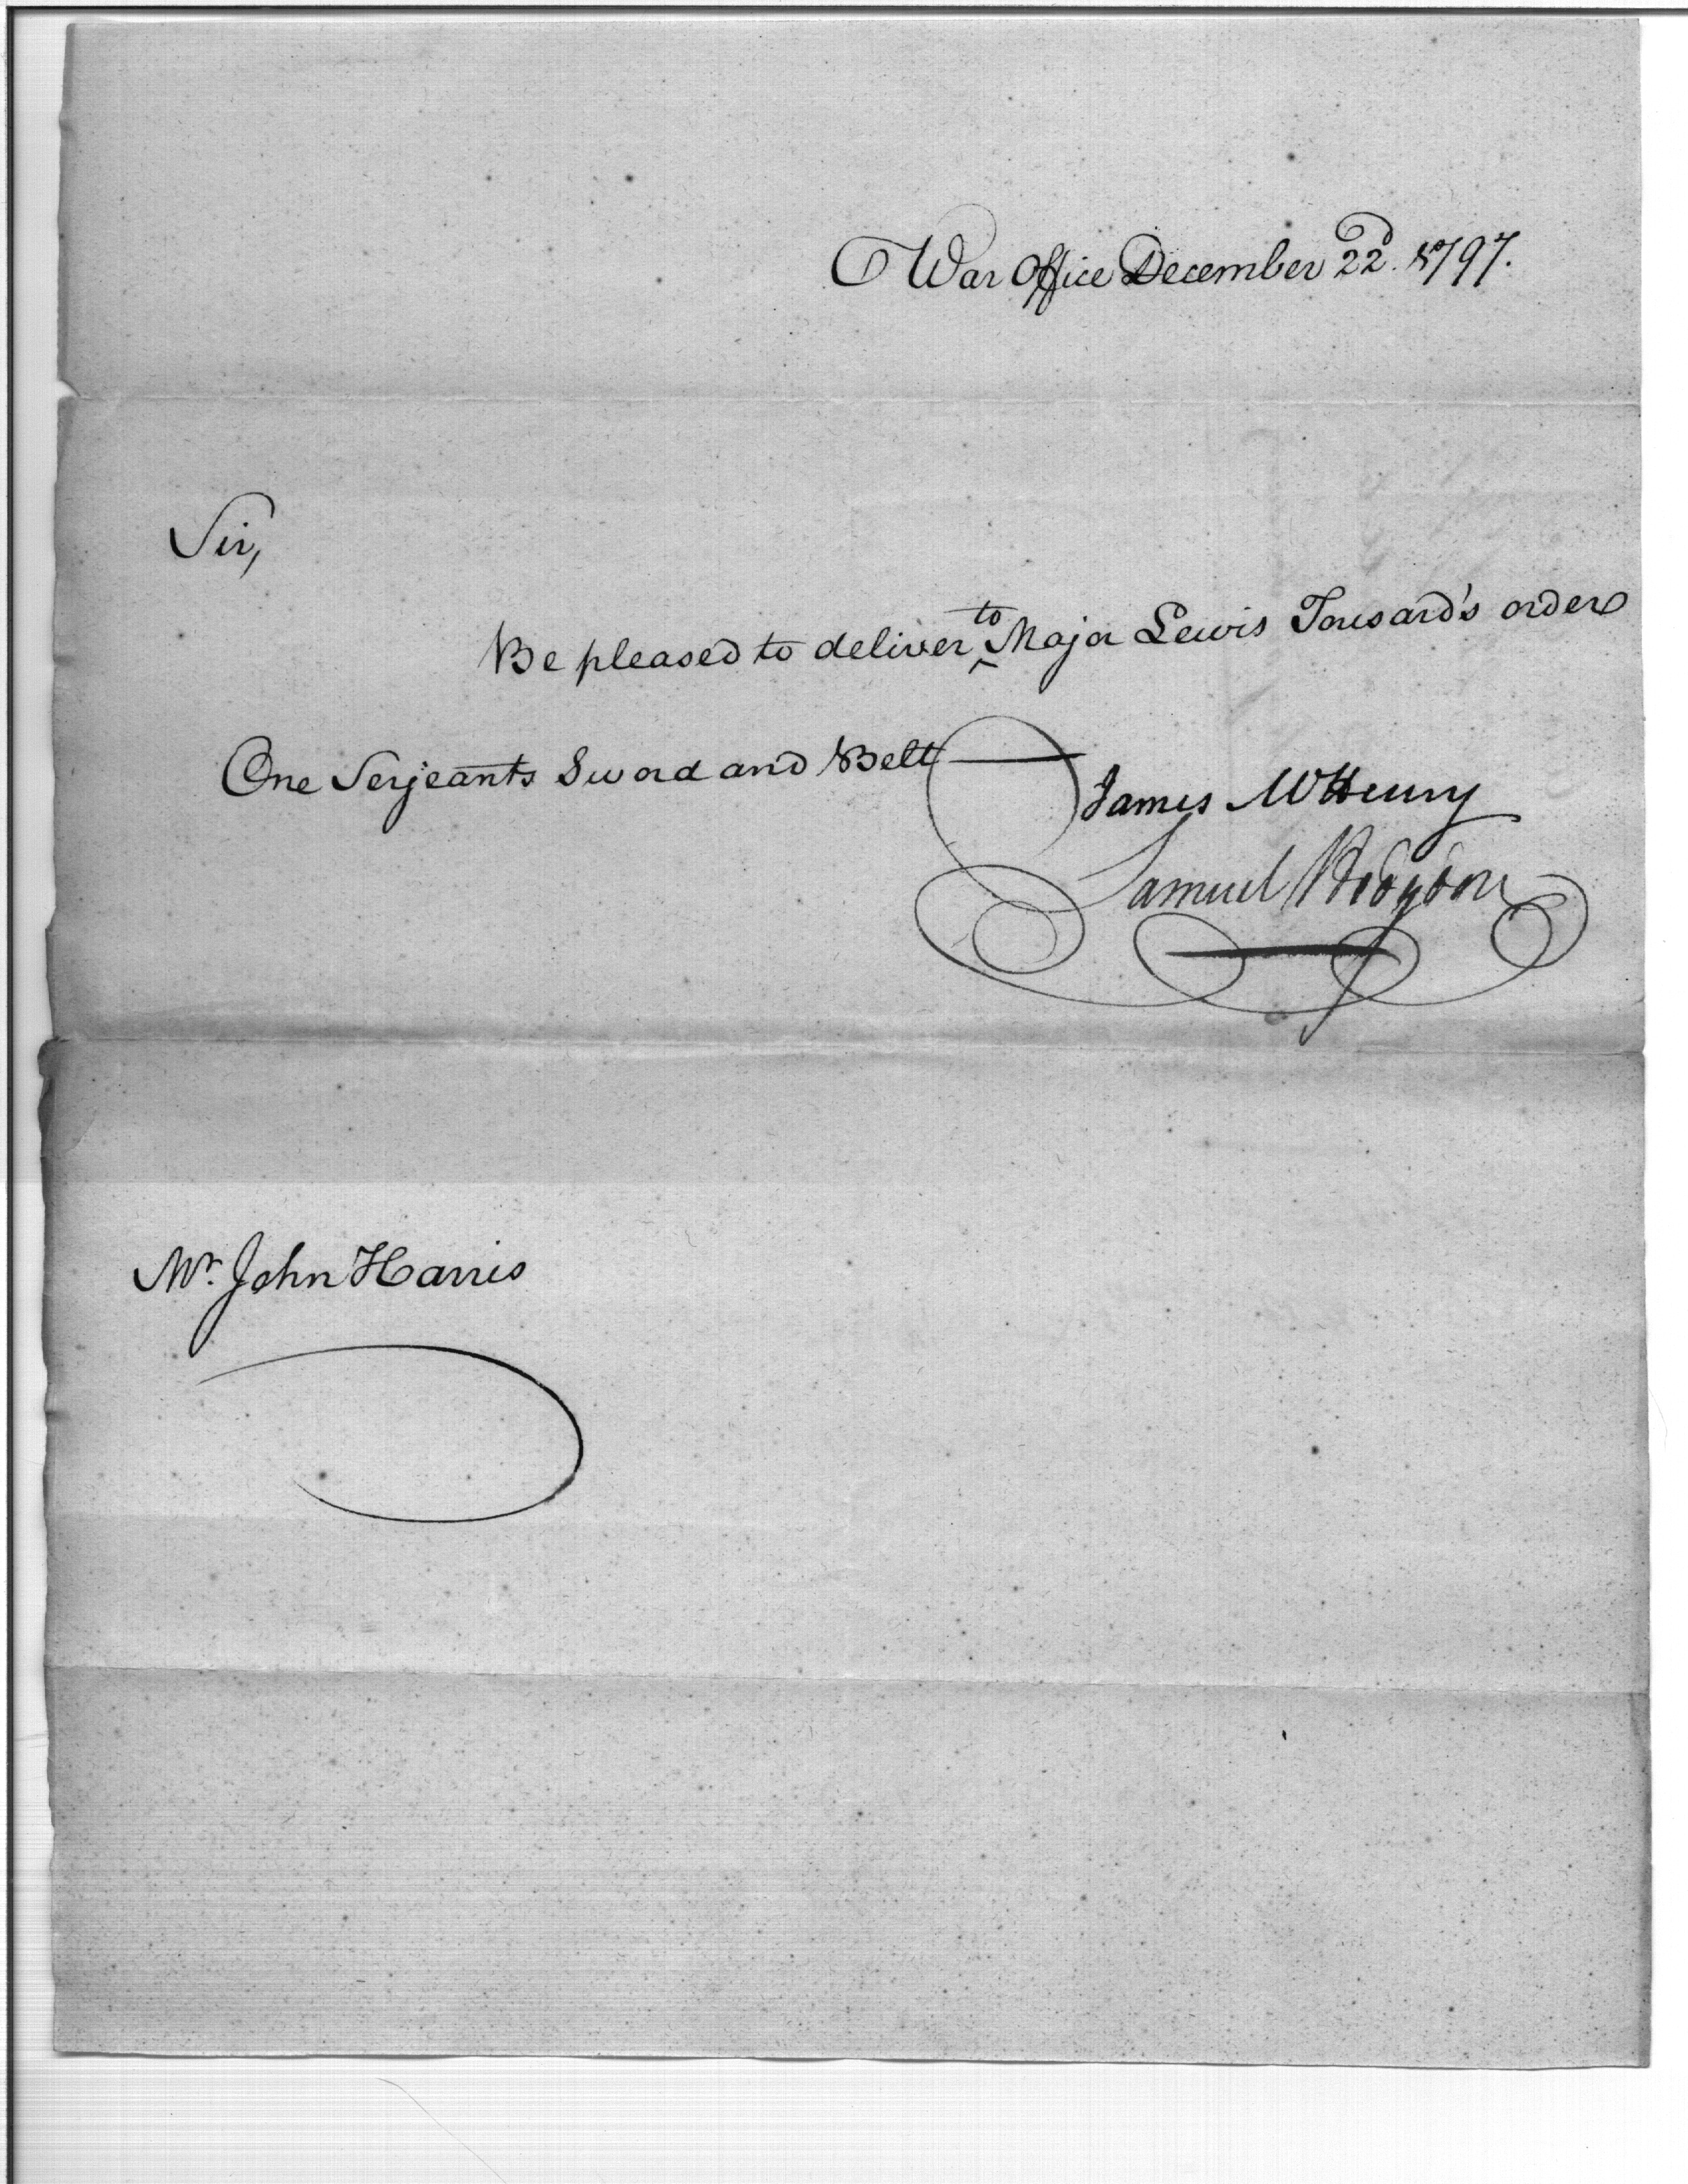 War Office December 22d. 1797.
Sir,
Be pleased to deliver to Major Lewis Tousard's order
One Serjeants Sword and Belt
James McHenry
Samuel Hodgdon
Mr. John Harris